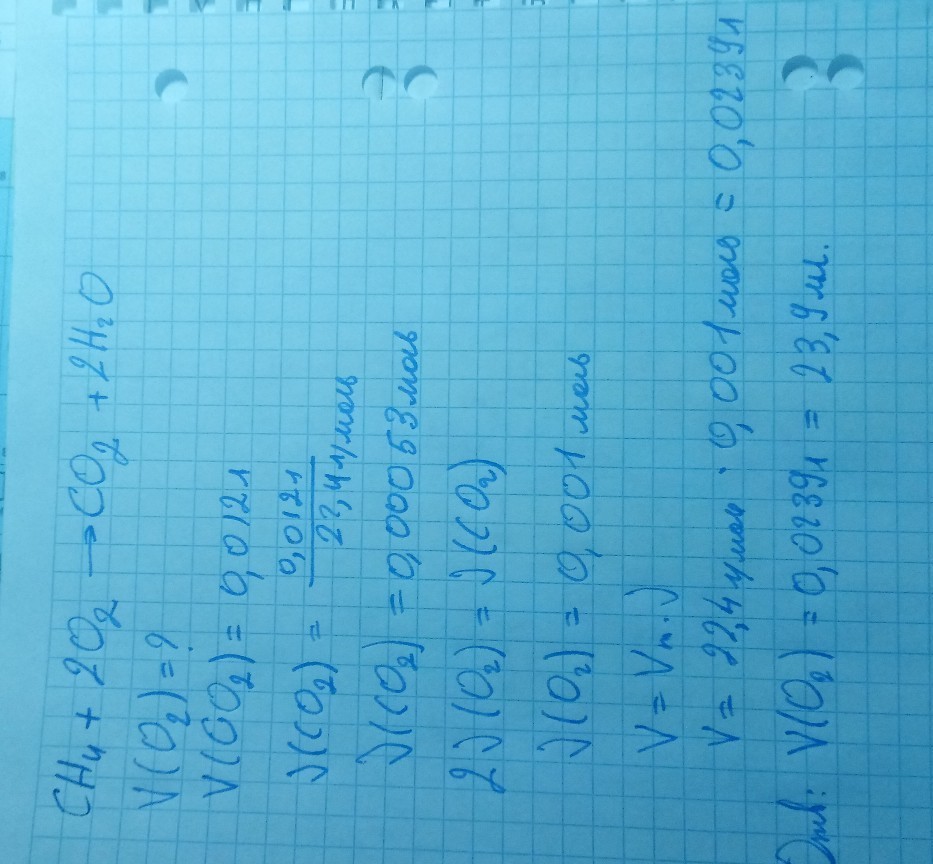 CH₄ + 2O₂ → CO₂ + 2H₂O
V(O₂) = ?
V(CO₂) = 0,012 л
ν(CO₂) = 0,012 л / 22,4 л/моль
ν(CO₂) = 0,00053 моль
2 ν(O₂) = ν(CO₂)
ν(O₂) = 0,001 моль
V = Vm · ν
V = 22,4 л/моль · 0,001 моль = 0,0239 л
Отв: V(O₂) = 0,0239 л = 23,9 мл.